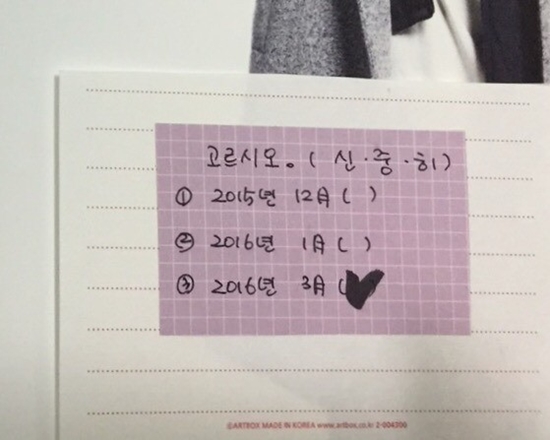 고르시오. ( 신·중·히)
① 2015년 12월 ( )
② 2016년 1월 ( )
③ 2016년 3월 (♥)
©ARTBOX MADE IN KOREA www.artbox.co.kr 2-004206